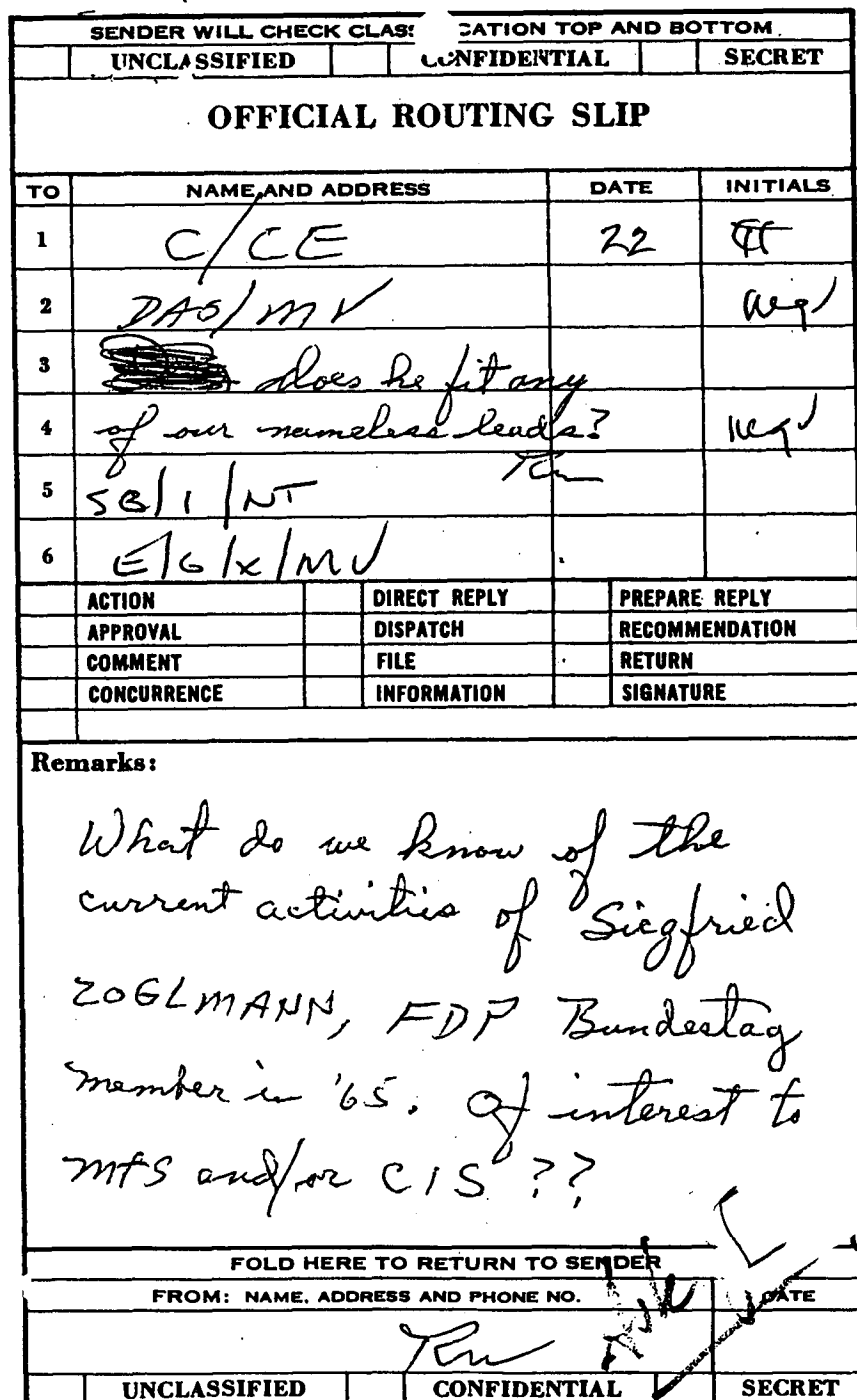 SENDER WILL CHECK CLASS CATION TOP AND BOTTOM
UNCLASSIFIED CONFIDENTIAL SECRET
OFFICIAL ROUTING SLIP
TO NAME AND ADDRESS DATE INITIALS
1 C/CE 22
2 DAS/MV neg
3 does he fit any
4 of our nameless leads? neg
5 SB/1/NT
6 E/G/X/MV
ACTION DIRECT REPLY PREPARE REPLY
APPROVAL DISPATCH RECOMMENDATION
COMMENT FILE RETURN
CONCURRENCE INFORMATION SIGNATURE
Remarks:
What do we know of the
current activities of Siegfried
ZOGLMANN, FDP Bundestag
member in '65. Of interest to
MfS and/or CIS ??
FOLD HERE TO RETURN TO SENDER
FROM: NAME, ADDRESS AND PHONE NO. DATE
UNCLASSIFIED CONFIDENTIAL SECRET